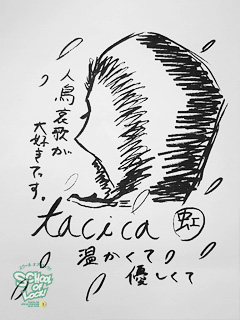 人鳥哀歌が
大好きです。
tacica
虹
温かくて
優しくて
SCHOOL
OF
LOCK!